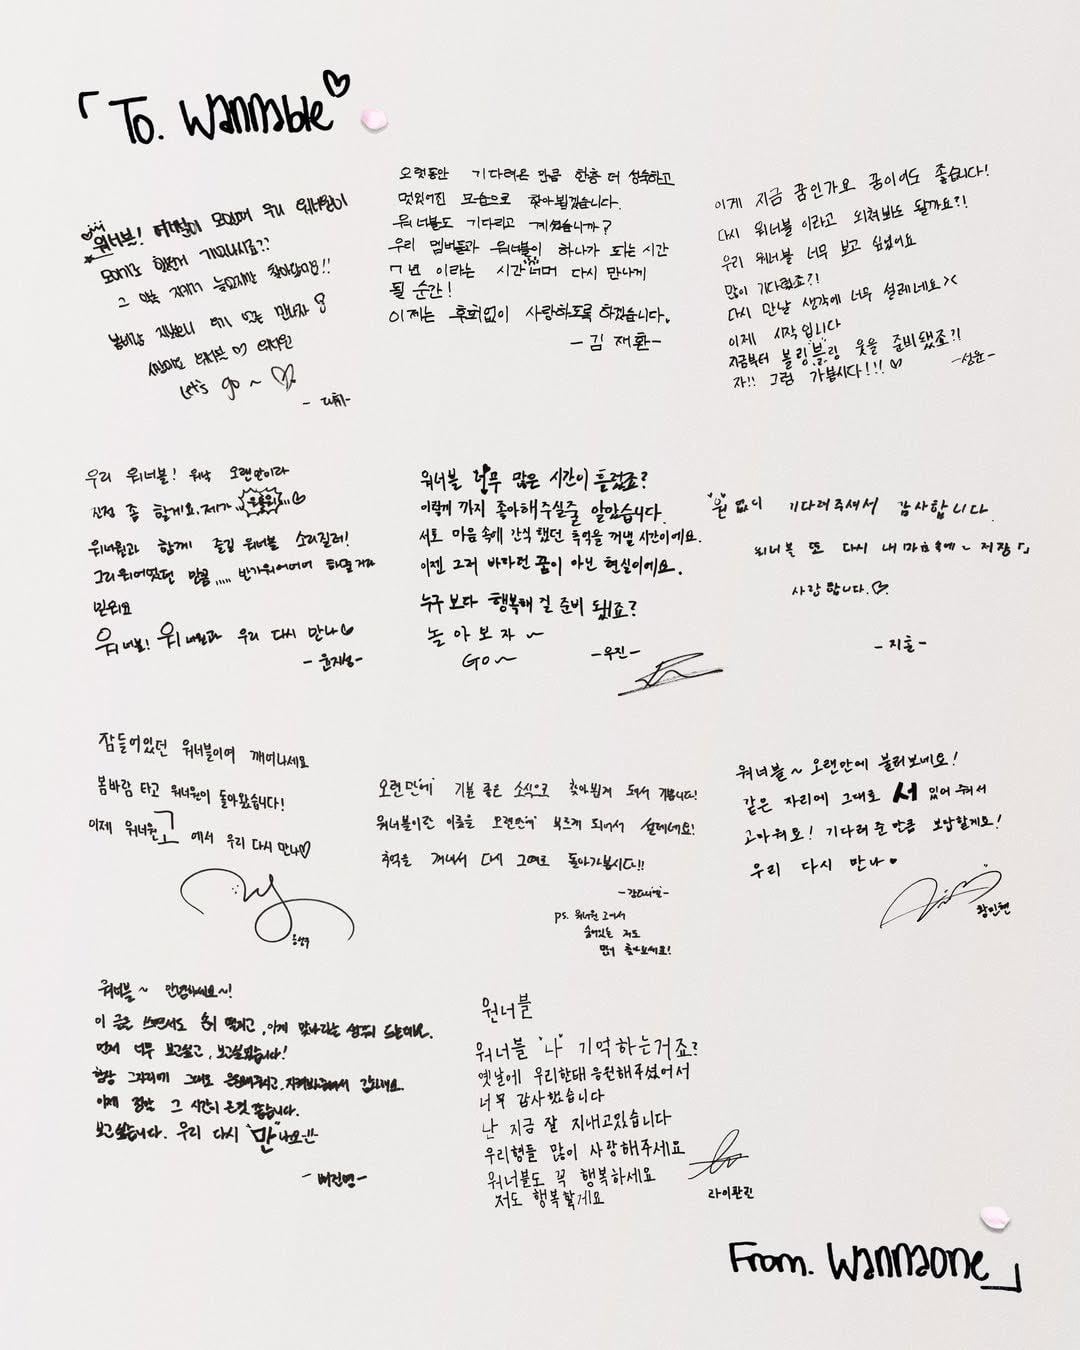 「To. Wannable♡
워너블! 여러분이 모였어요 우리 워너원이
그 약속 지키러 늦었지만 찾아왔어요!!
Let's go ~ ♡
오랫동안 기다려온 만큼 한층 더 성숙하고
멋있어진 모습으로 찾아뵙겠습니다.
워너블도 기다리고 계셨습니까?
우리 멤버들과 워너블이 하나가 되는 시간
7년 이라는 시간 너머 다시 만나게
될 순간!
이제는 후회없이 사랑하도록 하겠습니다.
-김재환-
이게 지금 꿈인가요 꿈이어도 좋습니다!
다시 워너블 이라고 외쳐봐도 될까요?!
우리 워너블 너무 보고 싶었어요
많이 기다렸죠?!
다시 만날 생각에 너무 설레네요><
이제 시작입니다
지금부터 블링블링 웃을 준비됐죠?!
자!! 그럼 가봅시다!!!♡
-성운-
우리 워너블! 워낙 오랜만이라
진정 좀 할게요. 제가
워너원과 함께 즐길 워너블 소리질러!
그리워했던 만큼,,,,, 반가워어어어 하며
믿어요
워너블! 워너원과 우리 다시 만나♡
-윤지성-
워너블 너무 많은 시간이 흘렀죠?
이렇게 까지 좋아해주실줄 알았습니다.
서로 마음 속에 간직했던 추억을 꺼낼 시간이에요.
이젠 그저 바라던 꿈이 아닌 현실이에요.
누구보다 행복해 질 준비 됐죠?
놀아보자~
GO~
-우진-
"원" 없이 기다려주셔서 감사합니다.
워너블 또 다시 내 마음속에~ 저장「」
사랑합니다.♡
-지훈-
잠들어있던 워너블이여 깨어나세요
봄바람 타고 워너원이 돌아왔습니다!
이제 워너원고에서 우리 다시 만나♡
옹성우
오랜만에 기분 좋은 소식으로 찾아뵙게 돼서 기쁩니다!
워너블이란 이름을 오랜만에 부르게 되어서 설레네요!
추억을 꺼내서 다시 그때로 돌아가봅시다!!
-강다니엘-
ps. 워너원 고에서
숨어있는 저도
많이 찾아보세요!
워너블~ 오랜만에 불러보네요!
같은 자리에 그대로 서 있어 줘서
고마워요! 기다려 준 만큼 보답할게요!
우리 다시 만나♥
황민현
워너블~ 안녕하세요~!
이 글을 쓰면서도 손이 떨리고, 이게 맞나라는 생각이 드는데요.
먼저 너무 보고싶고, 보고싶었습니다!
항상 그자리에 그대로 응원해주시고, 지켜봐주셔서 감사해요.
이제 정말 그 시간이 온것 같습니다.
보고싶습니다. 우리 다시 "만"나요!!
-배진영-
원너블
워너블 "나" 기억하는거죠?
옛날에 우리한테 응원해주셨어서
너무 감사했습니다
난 지금 잘 지내고있습니다
우리형들 많이 사랑해주세요
워너블도 꼭 행복하세요
저도 행복할게요
라이관린
From. Wannaone」